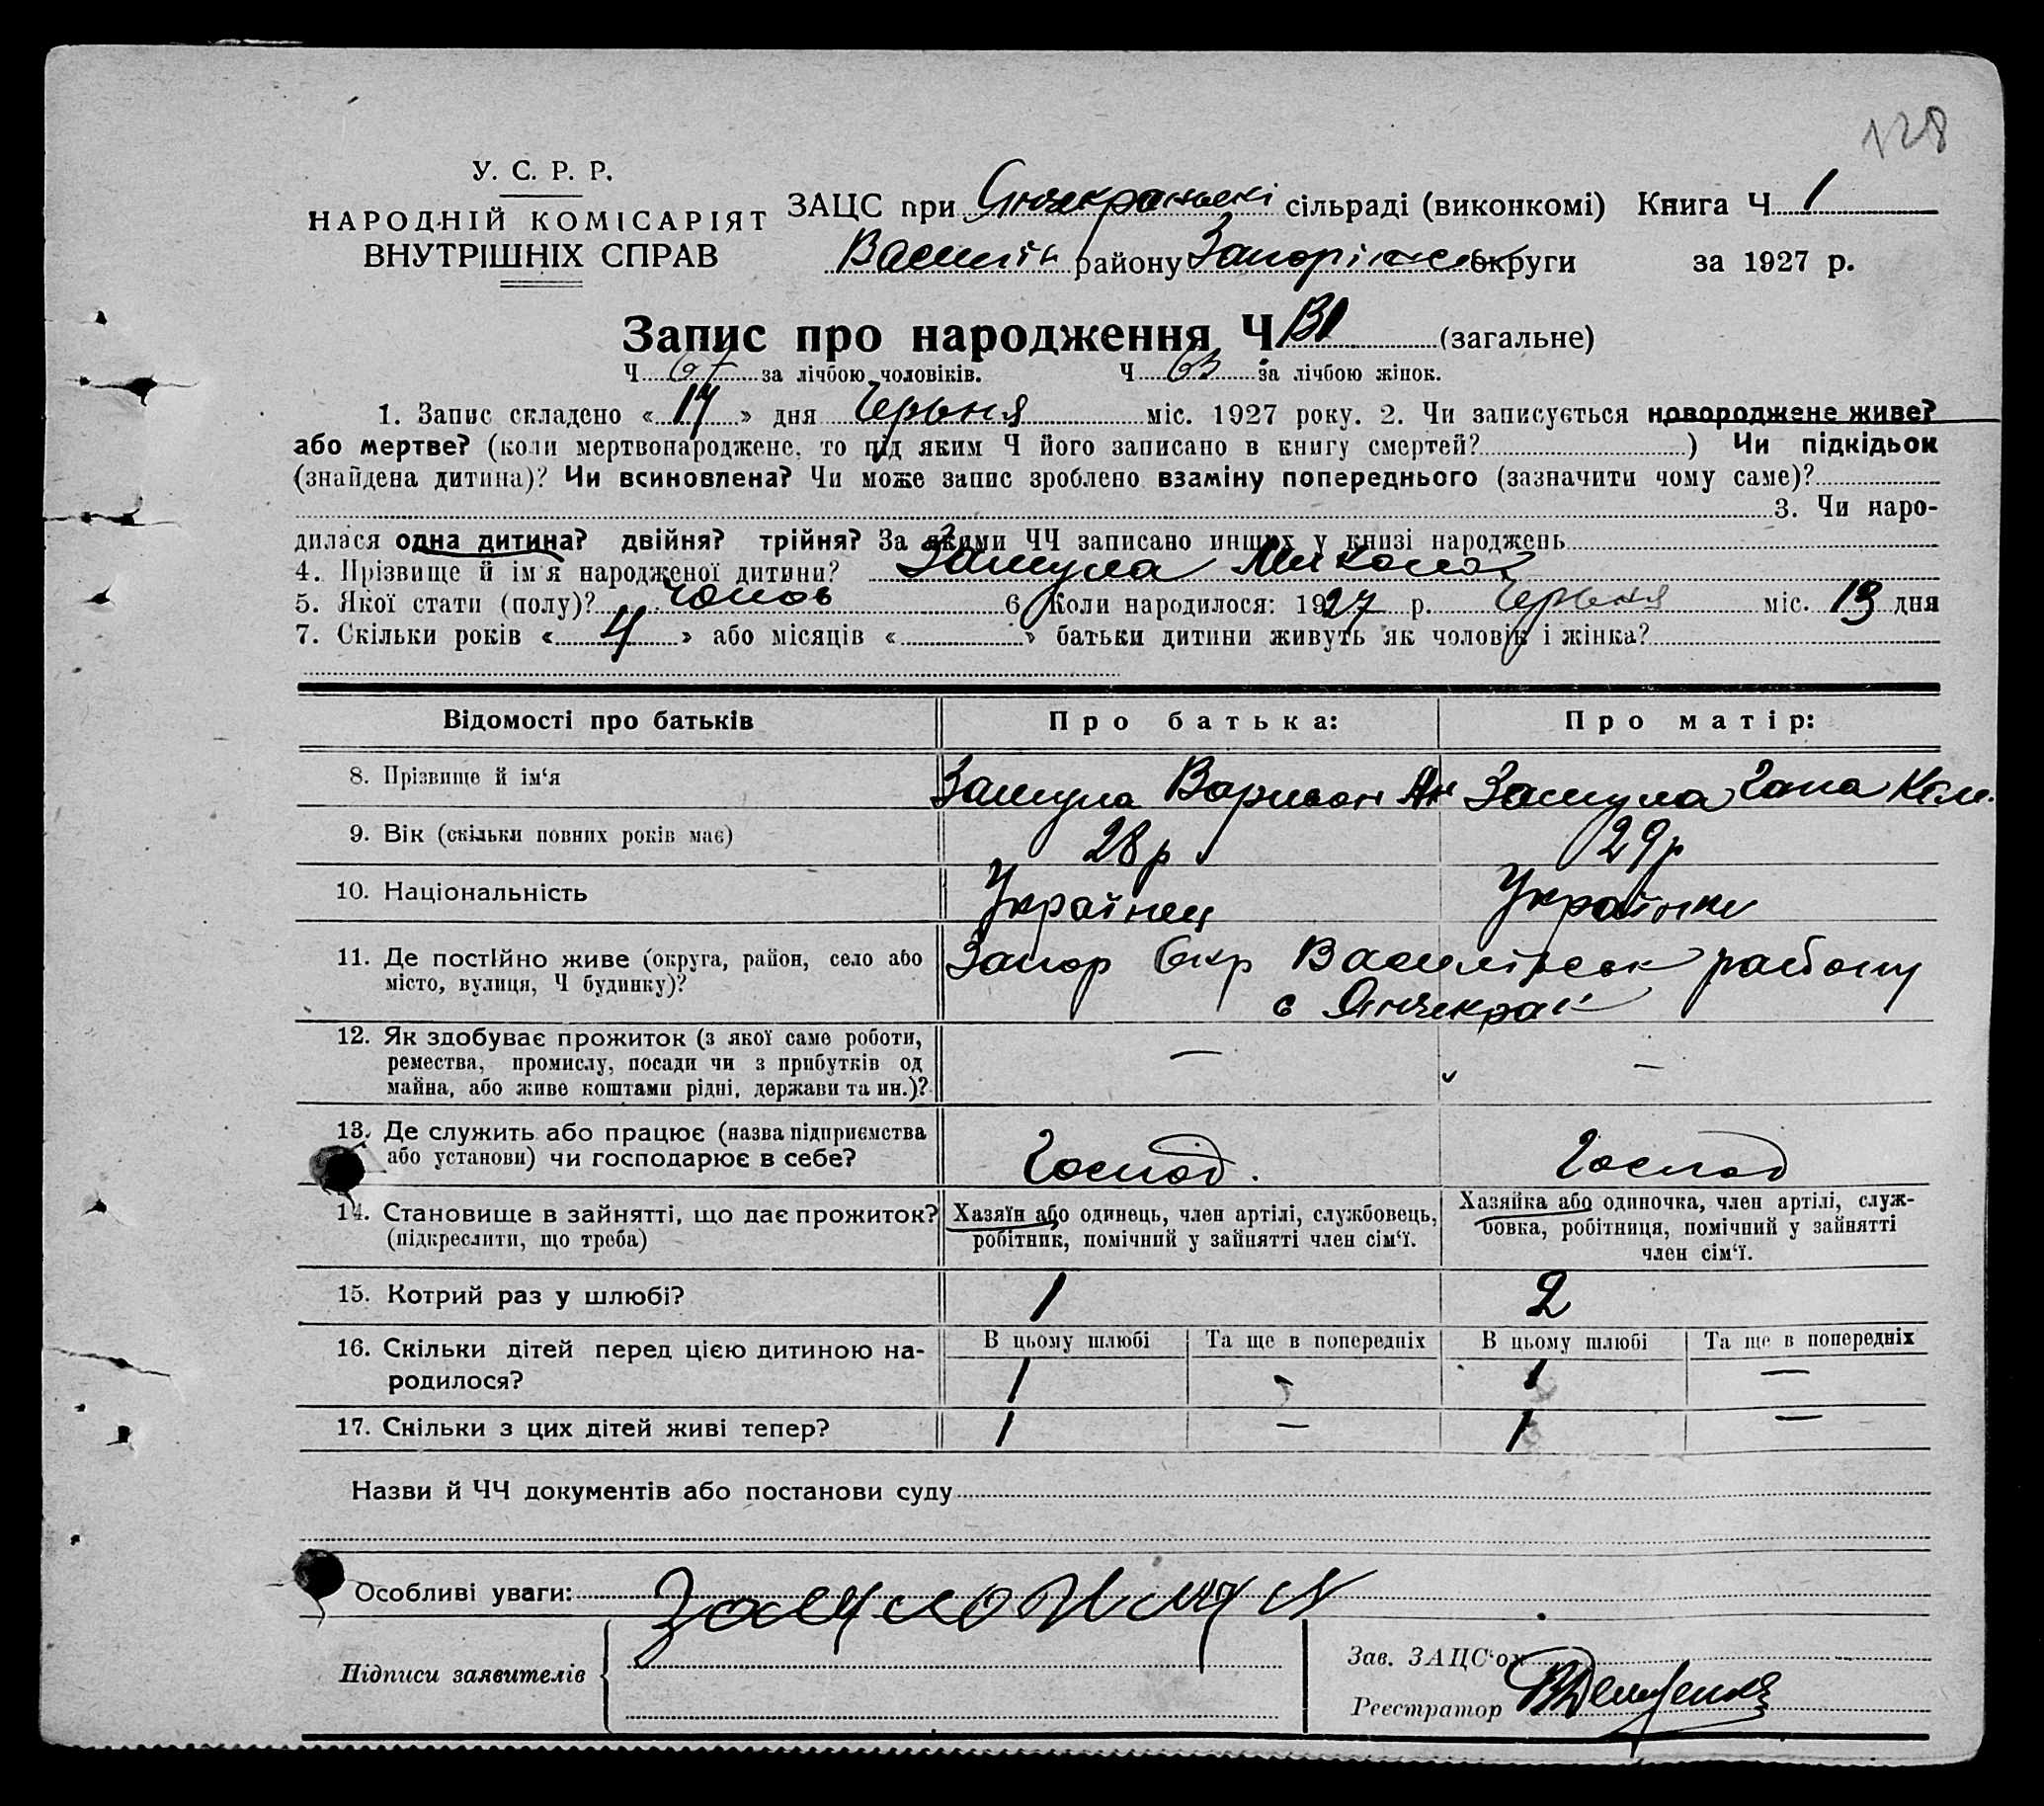 128
У. С. Р. Р.
НАРОДНІЙ КОМІСАРІЯТ
ВНУТРІШНІХ СПРАВ
ЗАЦС при Янчекракській сільраді (виконкомі) Книга Ч 1
Василів району Запоріжс округи за 1927 р.
Запис про народження Ч (загальне)
Ч 67 за лічбою чоловіків. Ч 63 за лічбою жінок.
1. Запис складено « 14 » дня Червня міс. 1927 року. 2. Чи записується новороджене живе?
або мертве? (коли мертвонароджене, то під яким Ч його записано в книгу смертей? ) Чи підкідьок
(знайдена дитина)? Чи всиновлена? Чи може запис зроблено взаміну попереднього (зазначити чому саме)?
3. Чи наро-
дилася одна дитина? двійня? трійня? За якими ЧЧ записано инших у книзі народжень
4. Прізвище й ім'я народженої дитини? Замула Микола
5. Якої стати (полу)? чолов 6. Коли народилося: 1927 р. Червня міс. 13 дня
7. Скільки років « 4 » або місяців « » батьки дитини живуть як чоловік і жінка?
Відомості про батьків Про батька: Про матір:
8. Прізвище й ім‘я Замула Замула Гапа
9. Вік (скільки повних років має) 28 р 29 р
10. Національність Українец Українки
11. Де постійно живе (округа, район, село або
місто, вулиця, Ч будинку)? Запор Окр Василівськ району
с Янчекрак
12. Як здобуває прожиток (з якої саме роботи,
ремества, промислу, посади чи з прибутків од
майна, або живе коштами рідні, держави та ин.)? — —
13. Де служить або працює (назва підприємства
або установи) чи господарює в себе? Господ. Господ
14. Становище в зайнятті, що дає прожиток?
(підкреслити, що треба)
Хазяїн або одинець, член артілі, службовець,
робітник, помічний у зайнятті член сім‘ї.
Хазяйка або одиночка, член артілі, служ-
бовка, робітниця, помічний у зайнятті
член сім‘ї.
15. Котрий раз у шлюбі? 1 2
В цьому шлюбі Та ще в попередніх В цьому шлюбі Та ще в попередніх
16. Скільки дітей перед цією дитиною на-
родилося? 1 - 1 —
17. Скільки з цих дітей живі тепер? 1 — 1 —
Назви й ЧЧ документів або постанови суду
Особливі уваги:
Підписи заявителів
Зав. ЗАЦС‘ом
Реєстратор